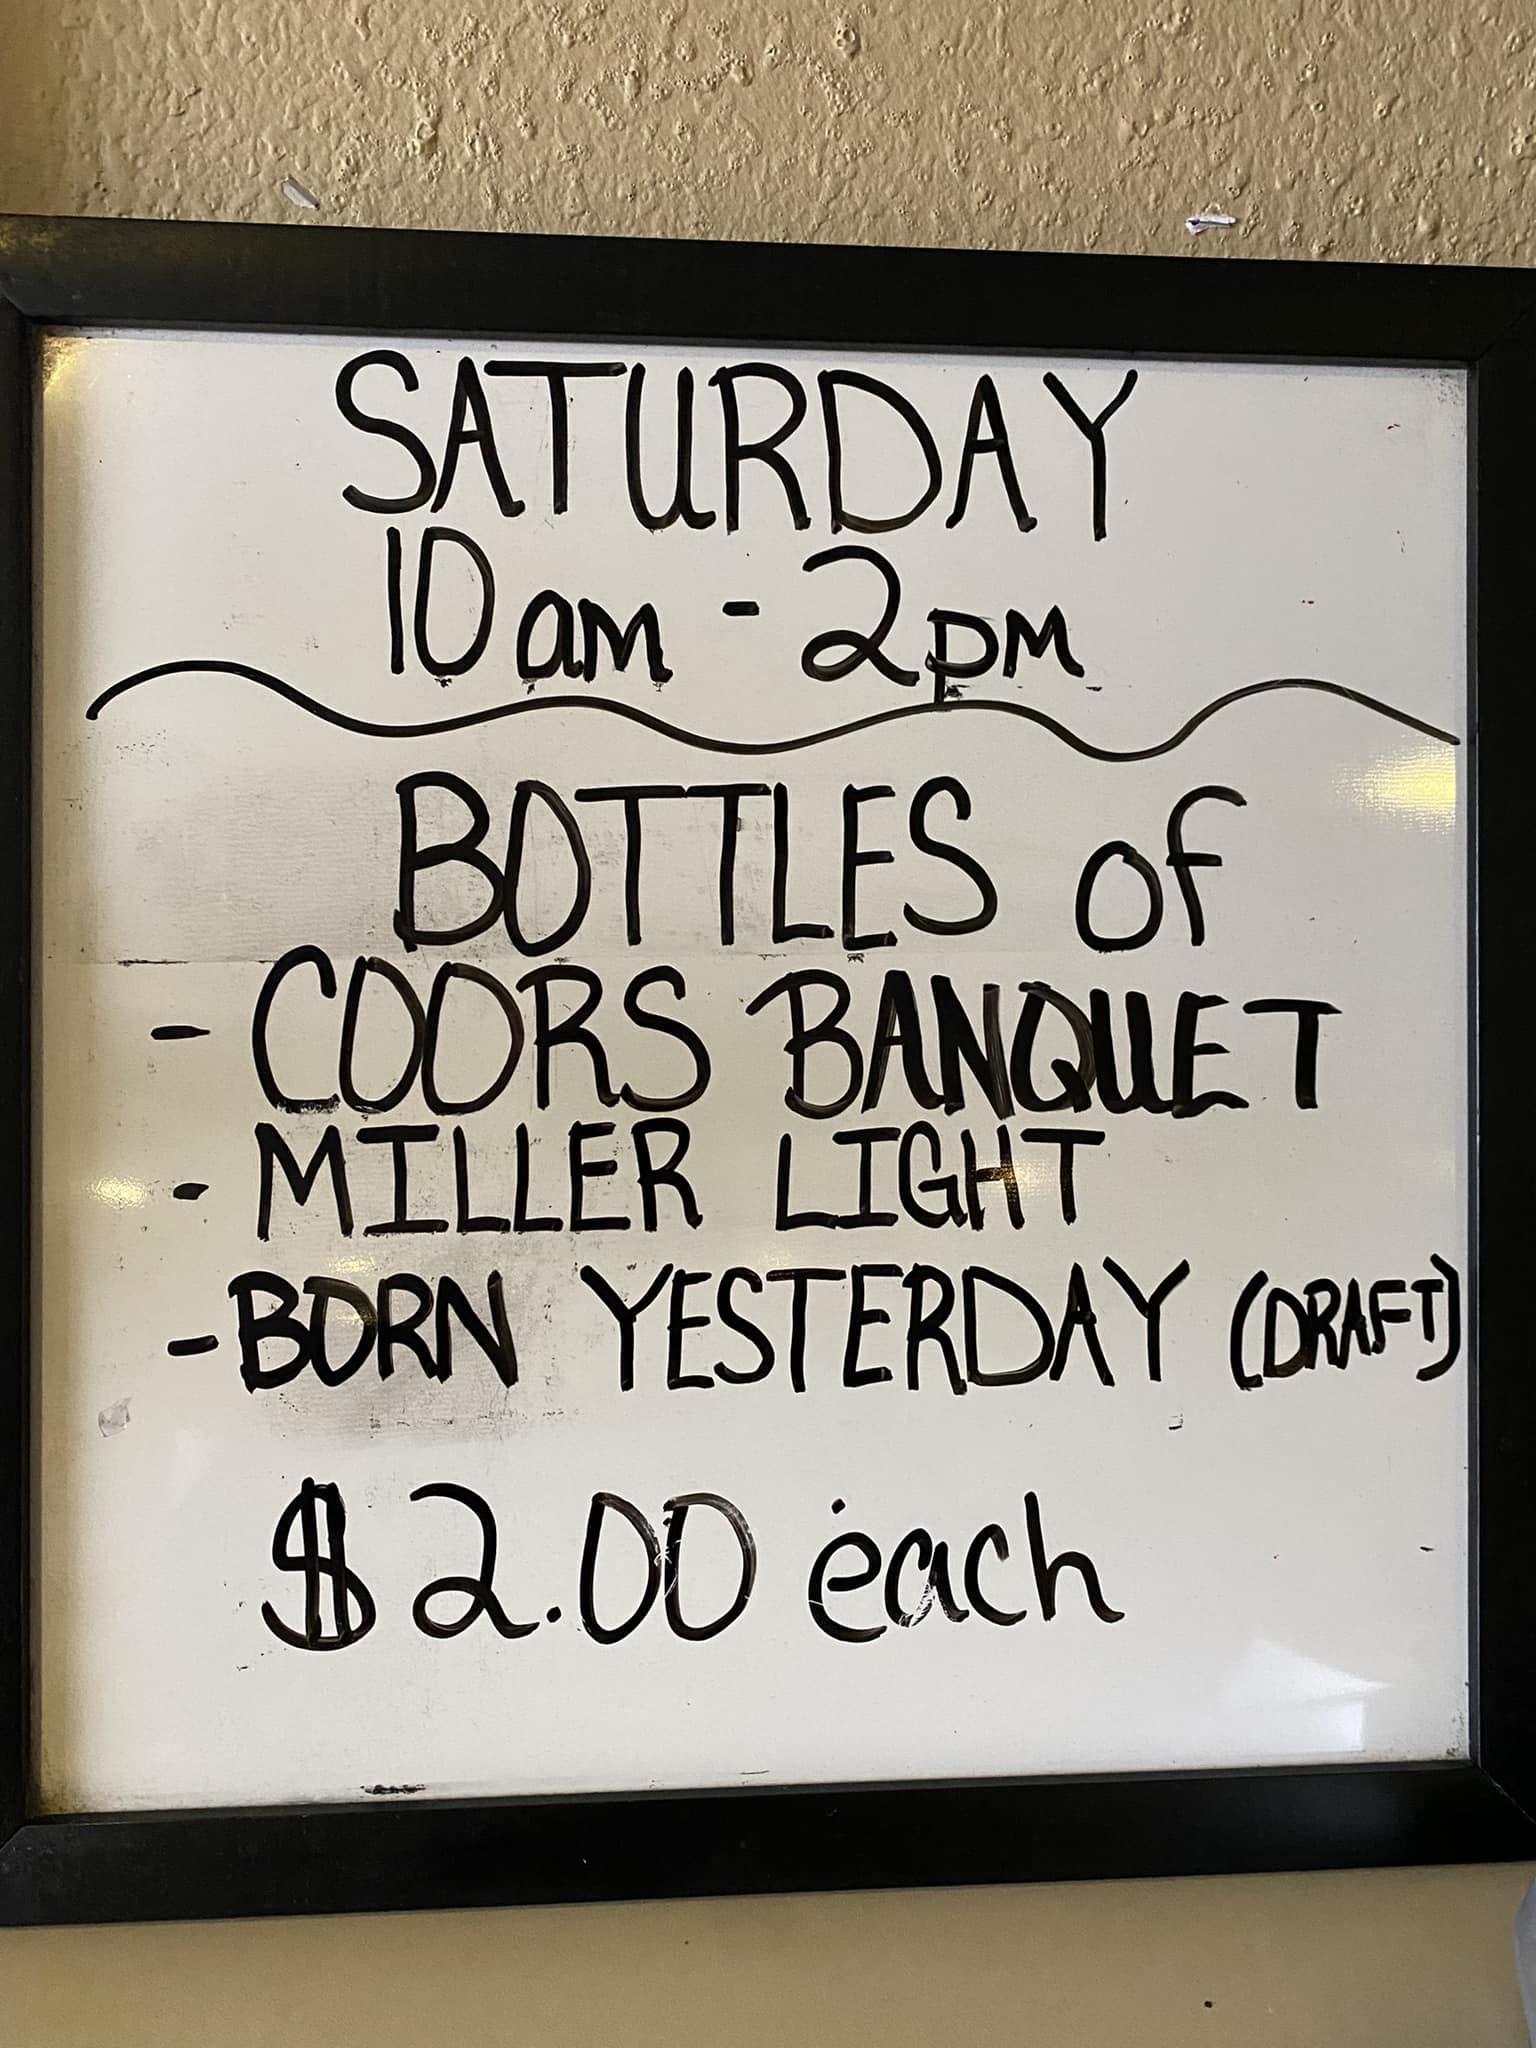 SATURDAY
10am - 2pm
BOTTLES of
- COORS BANQUET
- MILLER LIGHT
- BORN YESTERDAY (DRAFT)
$2.00 each